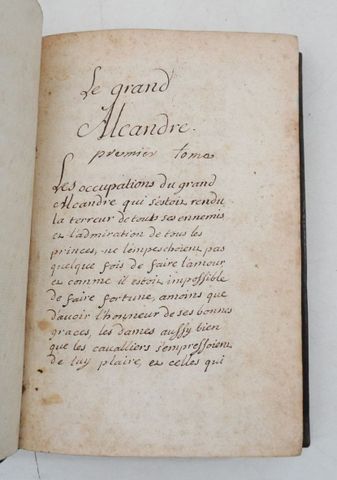 Le grand
Alcandre.
premier tome
Les occupations du grand
Alcandre qui s'estoit rendu
la terreur de tous ses ennemis
et l'admiration de tous les
princes, ne l'empeschoient pas
quelque fois de faire l'amour
et comme il estoit impossible
de faire fortune, amoins que
d'avoir l'honneur de ses bonnes
graces, les dames aussy bien
que les cavalliers s'empressoient
de luy plaire, et celles qui